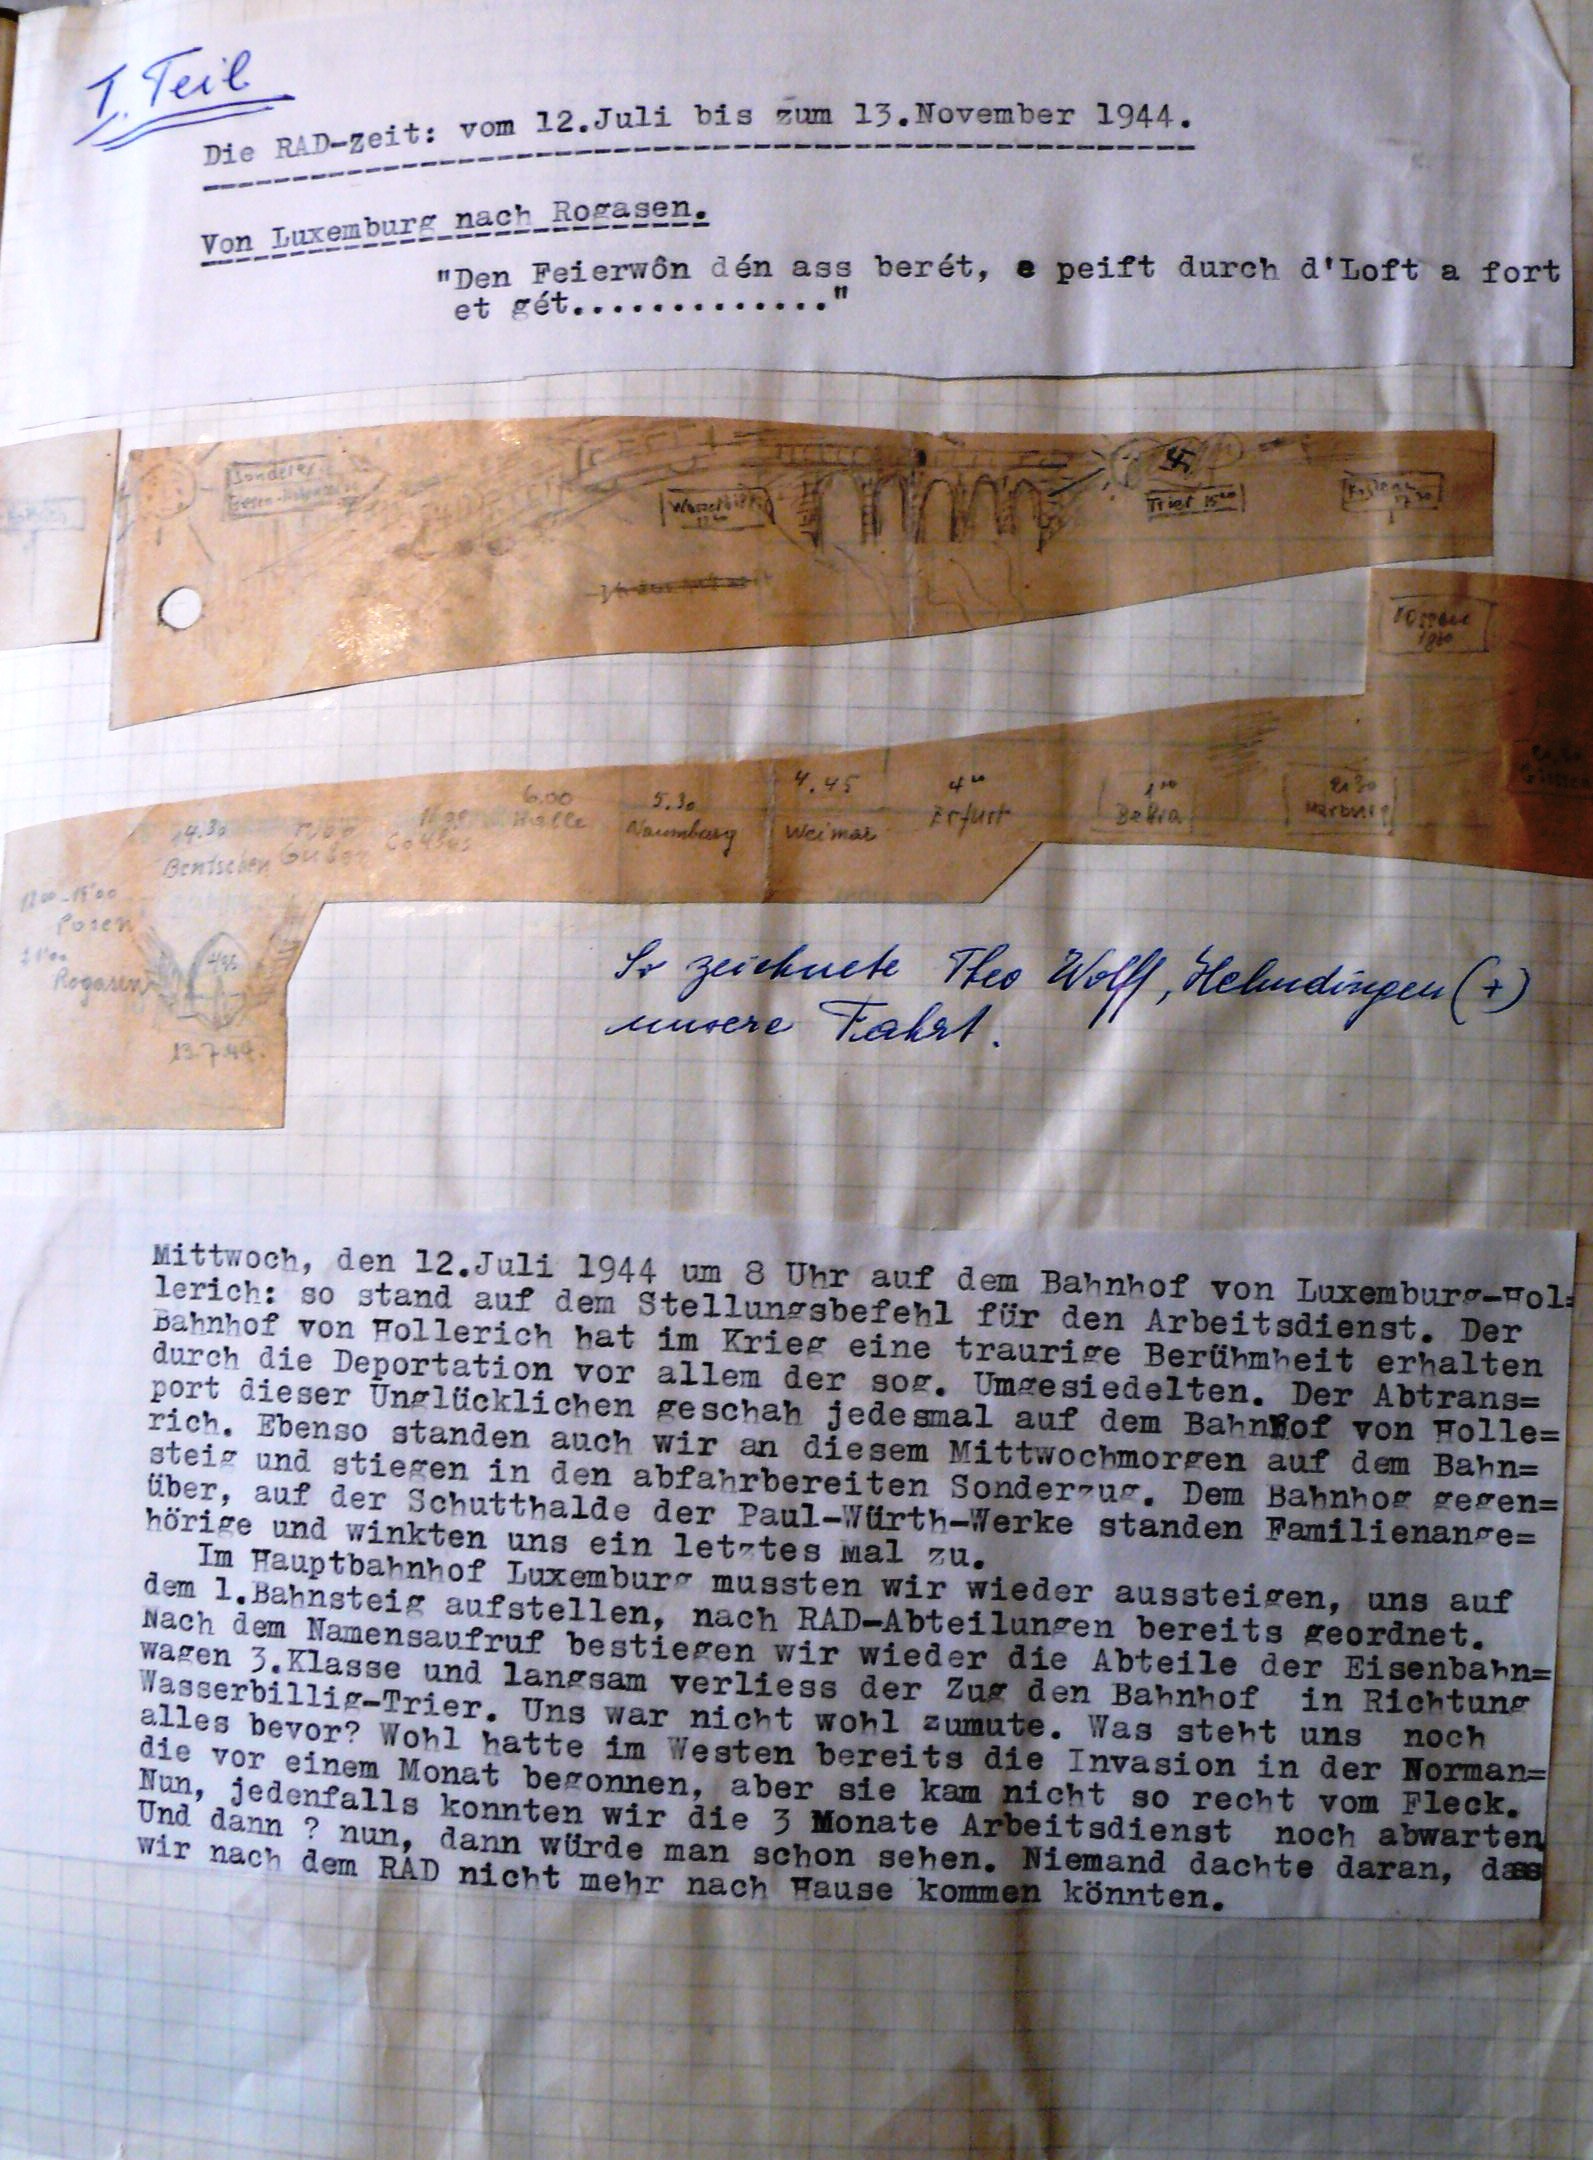 1. Teil
Die RAD-zeit: vom 12.Juli bis zum 13.November 1944.
Von Luxemburg nach Rogasen.
"Den Feierwôn dén ass berét, e peift durch d'Loft a fort
et gét.............."
Sonderzug
Wasserbillig
Trier 15⁰⁰
6.00
Halle
5.30
Naumburg
4.45
Weimar
4⁰⁰
Erfurt
1⁰⁰
Bebra
Marburg
14.30
Bentschen
Guben
Cottbus
Posen
Rogasen
13.7.44.
So zeichnete Theo Wolff, Helmdingen (+)
unsere Fahrt.
Mittwoch, den 12.Juli 1944 um 8 Uhr auf dem Bahnhof von Luxemburg-Hol=
lerich: so stand auf dem Stellungsbefehl für den Arbeitsdienst. Der
Bahnhof von Hollerich hat im Krieg eine traurige Berühmheit erhalten
durch die Deportation vor allem der sog. Umgesiedelten. Der Abtrans=
port dieser Unglücklichen geschah jedesmal auf dem Bahnhof von Holle=
rich. Ebenso standen auch wir an diesem Mittwochmorgen auf dem Bahn=
steig und stiegen in den abfahrbereiten Sonderzug. Dem Bahnhog gegen=
über, auf der Schutthalde der Paul-Würth-Werke standen Familienange=
hörige und winkten uns ein letztes Mal zu.
Im Hauptbahnhof Luxemburg mussten wir wieder aussteigen, uns auf
dem 1.Bahnsteig aufstellen, nach RAD-Abteilungen bereits geordnet.
Nach dem Namensaufruf bestiegen wir wieder die Abteile der Eisenbahn=
wagen 3.Klasse und langsam verliess der Zug den Bahnhof in Richtung
Wasserbillig-Trier. Uns war nicht wohl zumute. Was steht uns noch
alles bevor? Wohl hatte im Westen bereits die Invasion in der Norman=
die vor einem Monat begonnen, aber sie kam nicht so recht vom Fleck.
Nun, jedenfalls konnten wir die 3 Monate Arbeitsdienst noch abwarten
Und dann ? nun, dann würde man schon sehen. Niemand dachte daran, dass
wir nach dem RAD nicht mehr nach Hause kommen könnten.